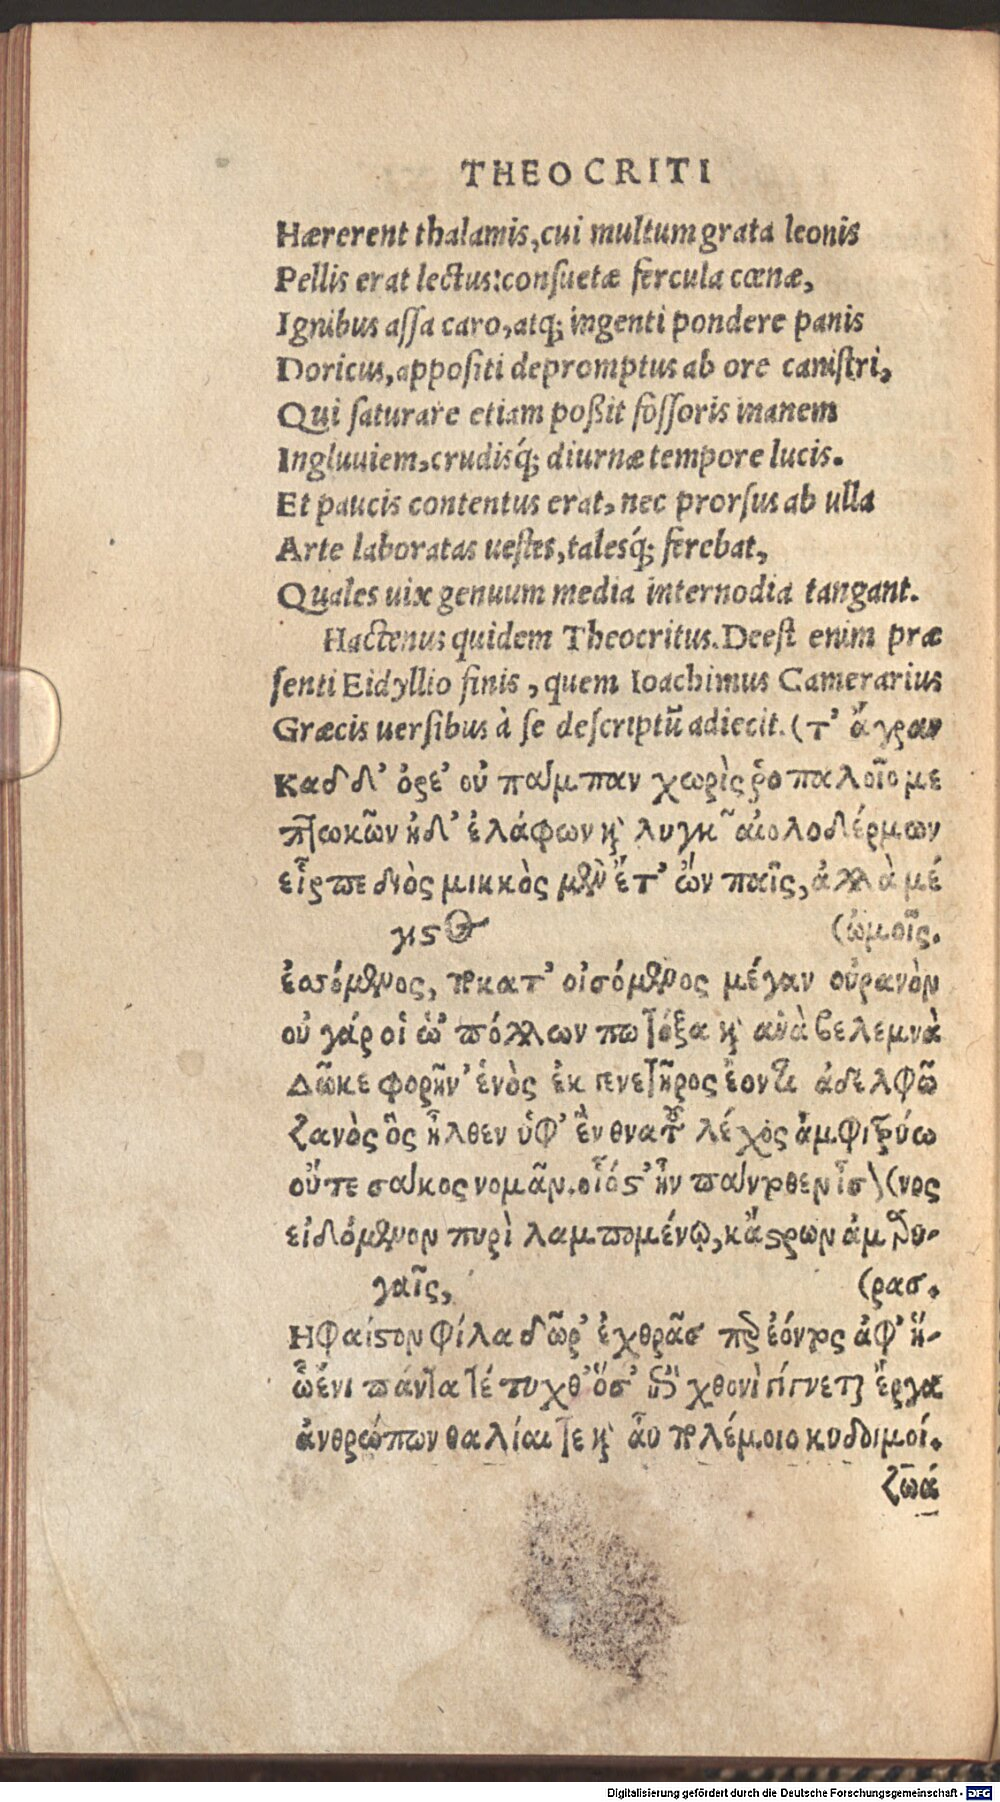 THEOCRITI
Hærerent thalamis, cui multum grata leonis
Pellis erat lectus: consuetæ fercula cœnæ,
Ignibus assa caro, atq; ingenti pondere panis
Doricus, appositi depromptus ab ore canistri,
Qui saturare etiam poßit fossoris inanem
Ingluuiem, crudisq́; diurnæ tempore lucis.
Et paucis contentus erat, nec prorsus ab ulla
Arte laboratas uestes, talesq́; ferebat,
Quales uix genuum media internodia tangant.
Hactenus quidem Theocritus. Deest enim præ
senti Eidyllio finis, quem Ioachimus Camerarius
Græcis uersibus à se descriptũ adiecit. (τ' ἄγραν
Καδδ' ὀρε' οὐ πάμπαν χωρὶς ῥοπαλοῖο με
πτωκῶν ἠδ' ἐλάφων κ̀ λυγκῶν αἰολοδέρμων
εἷρπε διὸς μικκὸς μὲν ἔτ' ὢν παῖς, ἀλλὰ μέ
γιστος (ὤμοις.
ἐσσόμενος, ποκατ' οἰσόμενος μέγαν οὐρανὸν
οὐ γάρ οἱ ὡς πόλλων πω τόξα κ̀ ἀνὰ βελεμνὰ
Δῶκε φορῆν' ἑνὸς ἐκ γενετῆρος ἐοντι ἀδελφῶ
ζανὸς ὃς ἦλθεν ὑφ' ἓν θνατοῦ λέχος ἀμφιτρύω
οὔτε σάκος νομᾶν. οἷόστ' ἦν παντοθεν ἶσ) (νος
εἰδόμενον πυρὶ λαμπομένῳ, κἄστρων ἀμαρυ-
γαῖς, (ρασ.
Ηφαίστον φίλα δῶρ' ἐχθρᾶσ προεόντος ἀφ' ἥ-
ὧ ἐνι πάντα τέτυχθ' ὅσ' ἐπὶ χθονὶ γίγνεται ἔργα
ἀνθρώπων θαλίαι τε κ̀ αὖ πολέμοιο κυδοιμοί.
ζωά
Digitalisierung gefördert durch die Deutsche Forschungsgemeinschaft - DFG